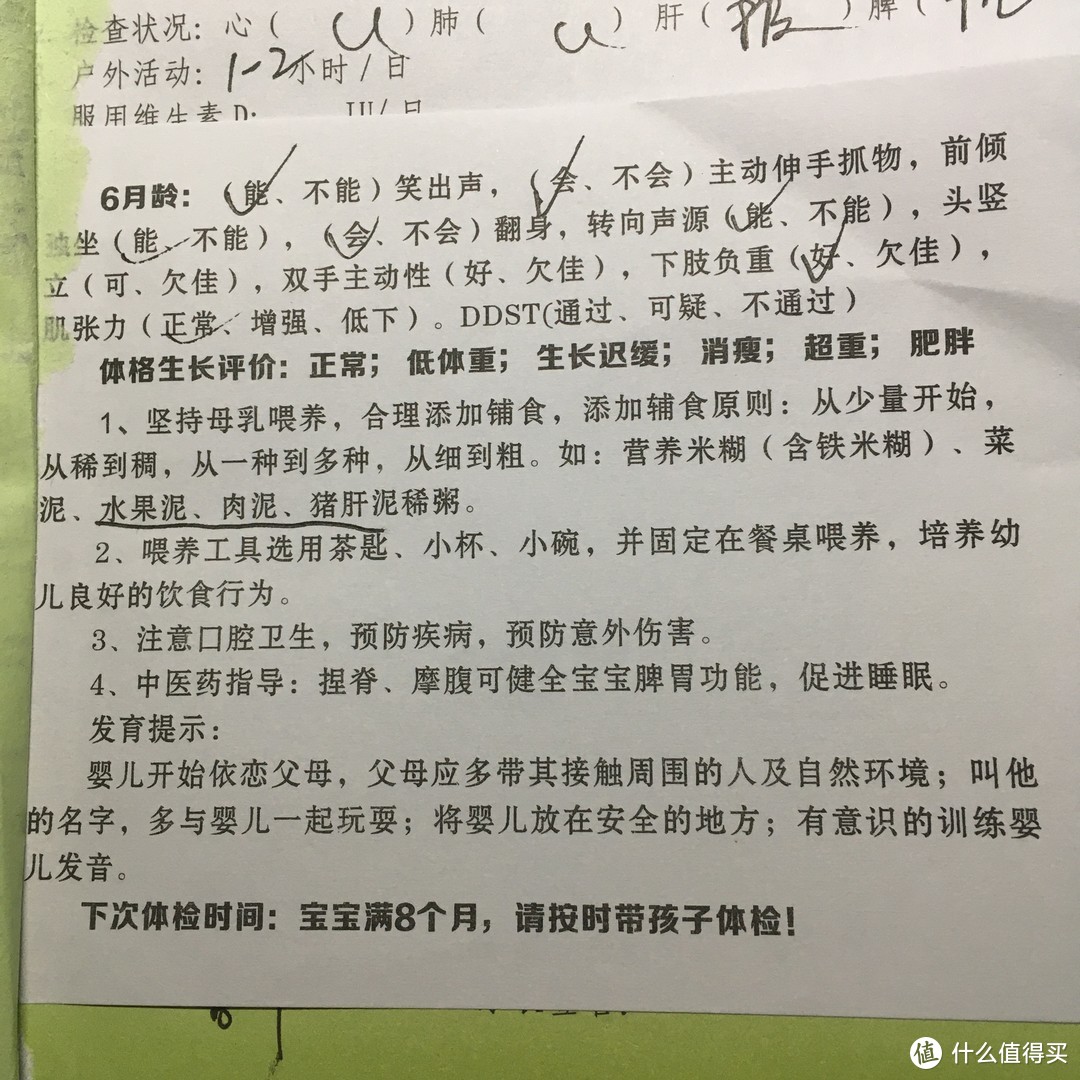 检查状况：心（ ）肺（ ）肝（ ）脾（
户外活动：1-2小时/日
服用维生素D： IU/日
6月龄：（能、不能）笑出声，（会、不会）主动伸手抓物，前倾
独坐（能、不能），（会、不会）翻身，转向声源（能、不能），头竖
立（可、欠佳），双手主动性（好、欠佳），下肢负重（好、欠佳），
肌张力（正常、增强、低下）。DDST(通过、可疑、不通过）
体格生长评价：正常；低体重；生长迟缓；消瘦；超重；肥胖
1、坚持母乳喂养，合理添加铺食，添加辅食原则：从少量开始，
从稀到稠，从一种到多种，从细到粗。如：营养米糊（含铁米糊）、菜
泥、水果泥、肉泥、猪肝泥稀粥。
2、喂养工具选用茶匙、小杯、小碗，并固定在餐桌喂养，培养幼
儿良好的饮食行为。
3、注意口腔卫生，预防疾病，预防意外伤害。
4、中医药指导：捏脊、摩腹可健全宝宝脾胃功能，促进睡眠。
发育提示：
婴儿开始依恋父母，父母应多带其接触周围的人及自然环境；叫他
的名字，多与婴儿一起玩耍；将婴儿放在安全的地方；有意识的训练婴
儿发音。
下次体检时间：宝宝满8个月，请按时带孩子体检！
值 什么值得买